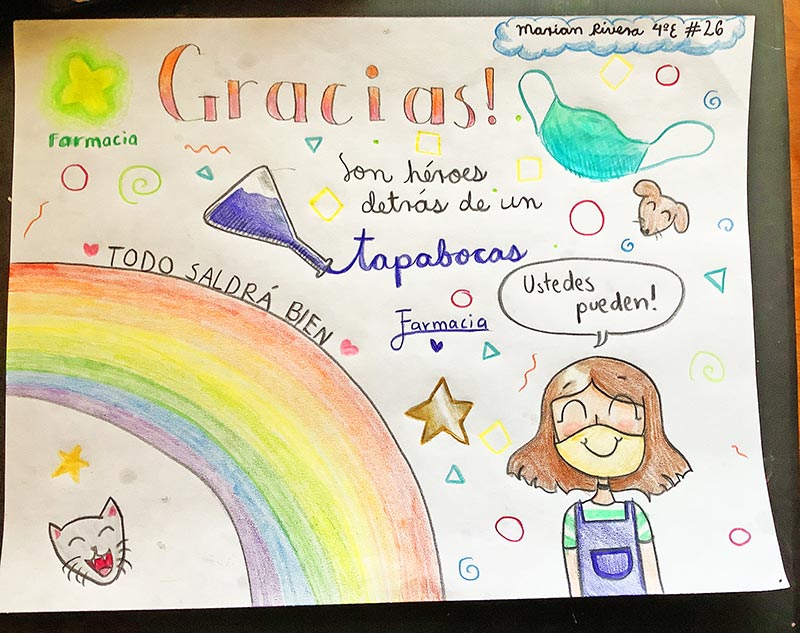 Marian Rivera 4ºE #26
Gracias!
Farmacia
Son héroes
detrás de un
tapabocas
TODO SALDRÁ BIEN
Farmacia
Ustedes
pueden!